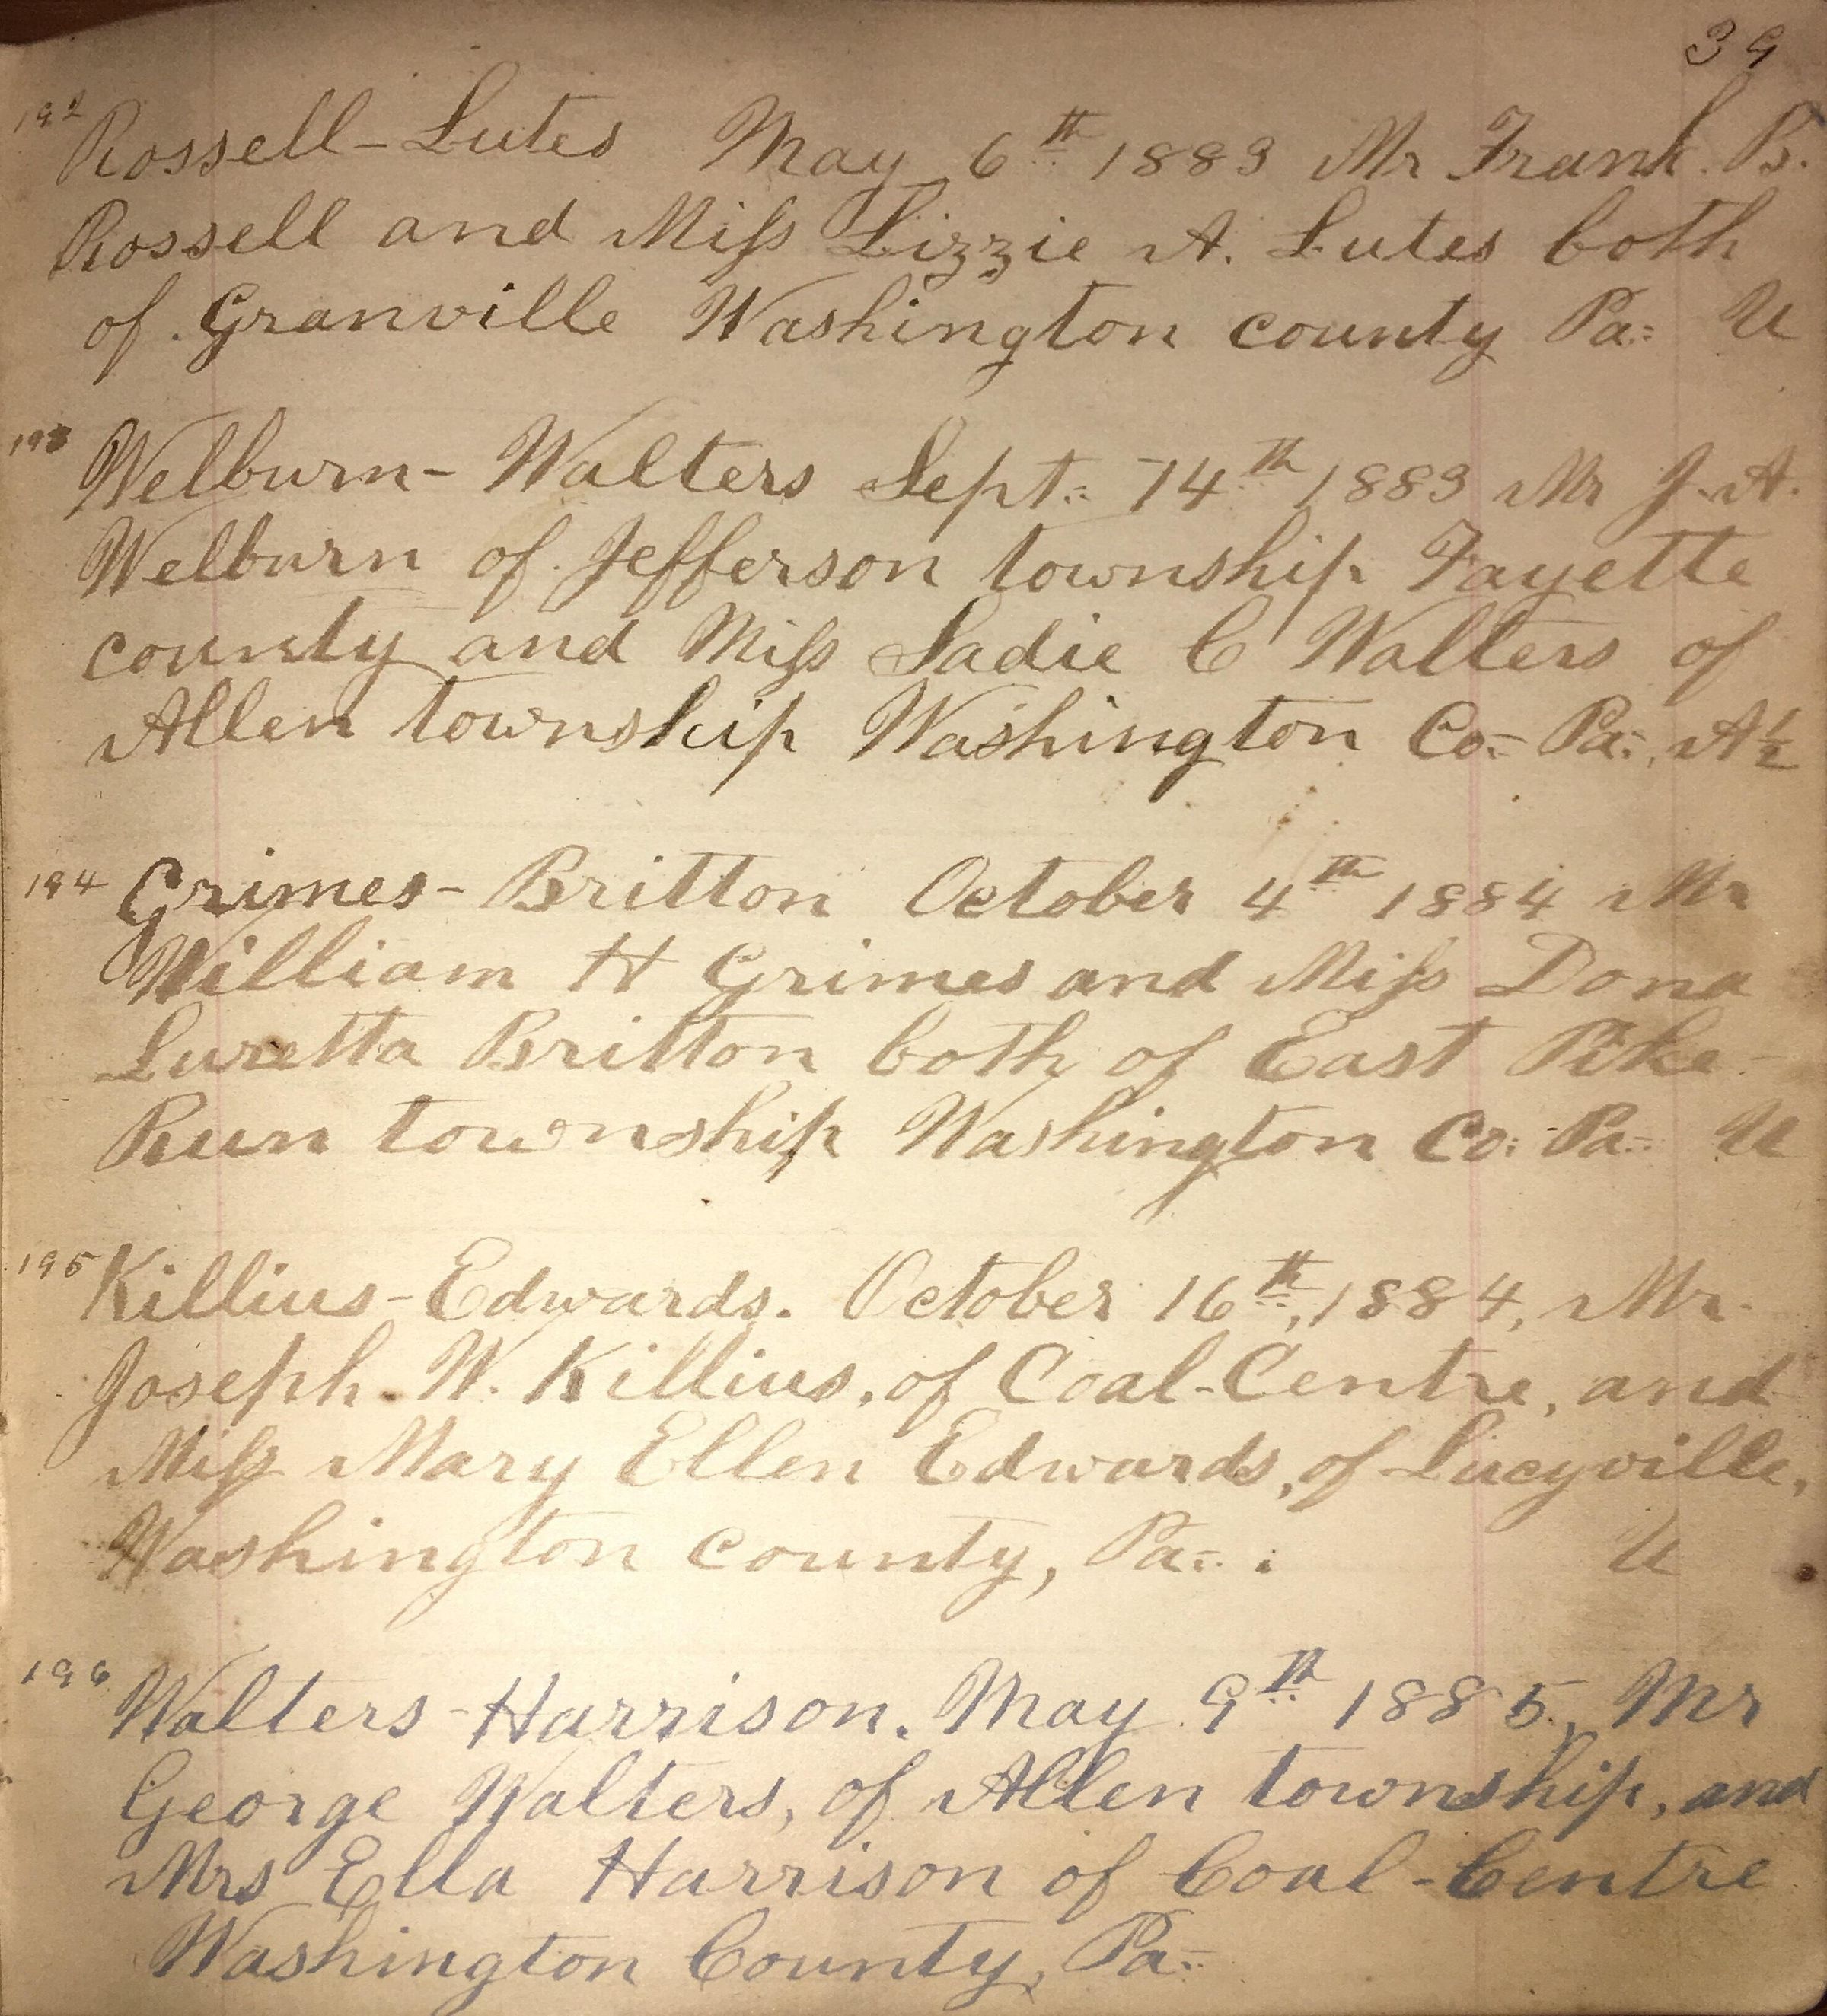 39
192 Rossell-Lutes May 6th 1883 Mr Frank. B.
Rossell and Miss Lizzie A. Lutes both
of Granville Washington county Pa: U
193 Welburn- Walters Sept: 14th 1883 Mr J. A.
Welburn of Jefferson township Fayette
county and Miss Sadie C Walters of
Allen township Washington Co: Pa:, A½
194 Grimes- Britton October 4th 1884 Mr
William H Grimes and Miss Dona
Luretta Britton both of East Pike-
Run township Washington Co: Pa: U
195 Killius-Edwards. October 16th, 1884, Mr.
Joseph. W. Killius, of Coal-Centre, and
Miss Mary Ellen Edwards, of Lucyville,
Washington county, Pa: . U
196 Walters-Harrison. May 9th 1885, Mr
George Walters, of Allen township, and
Mrs Ella Harrison of Coal-Centre
Washington County, Pa: